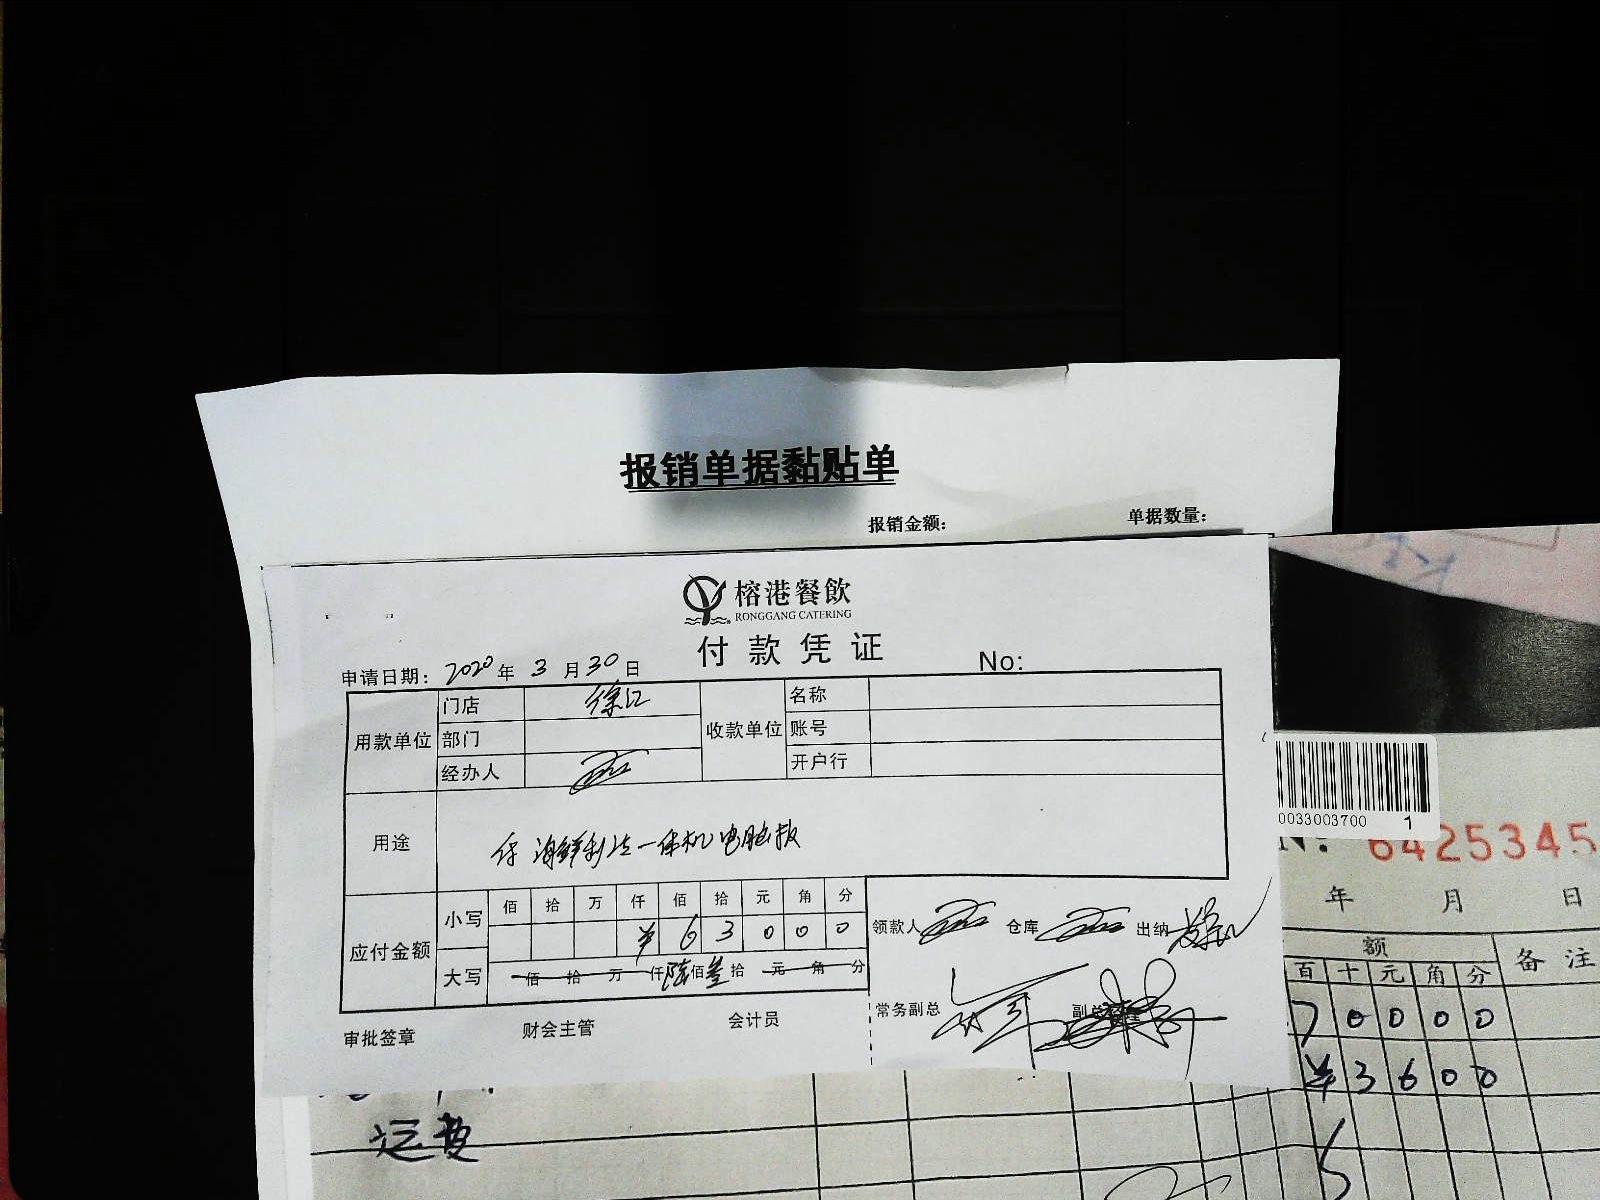 报销单据黏贴单
报销金额： 单据数量：
榕港餐飲
RONGGANG CATERING
付款凭证
申请日期：2020年3月30日 No:
用款单位 门店 徐汇 收款单位 名称
部门 账号
经办人 开户行
用途 一体机电脑板
应付金额 小写 佰 拾 万 仟 佰 拾 元 角 分
¥ 6 3 0 0 0
大写 佰 拾 万 仟 陆佰叁拾 元 角 分
领款人 仓库 出纳
常务副总 副总
审批签章 财会主管 会计员
0033003700 1
6425345
年 月 日
额 备注
百 十 元 角 分
7 0 0 0 0
¥ 3 6 0 0
运费